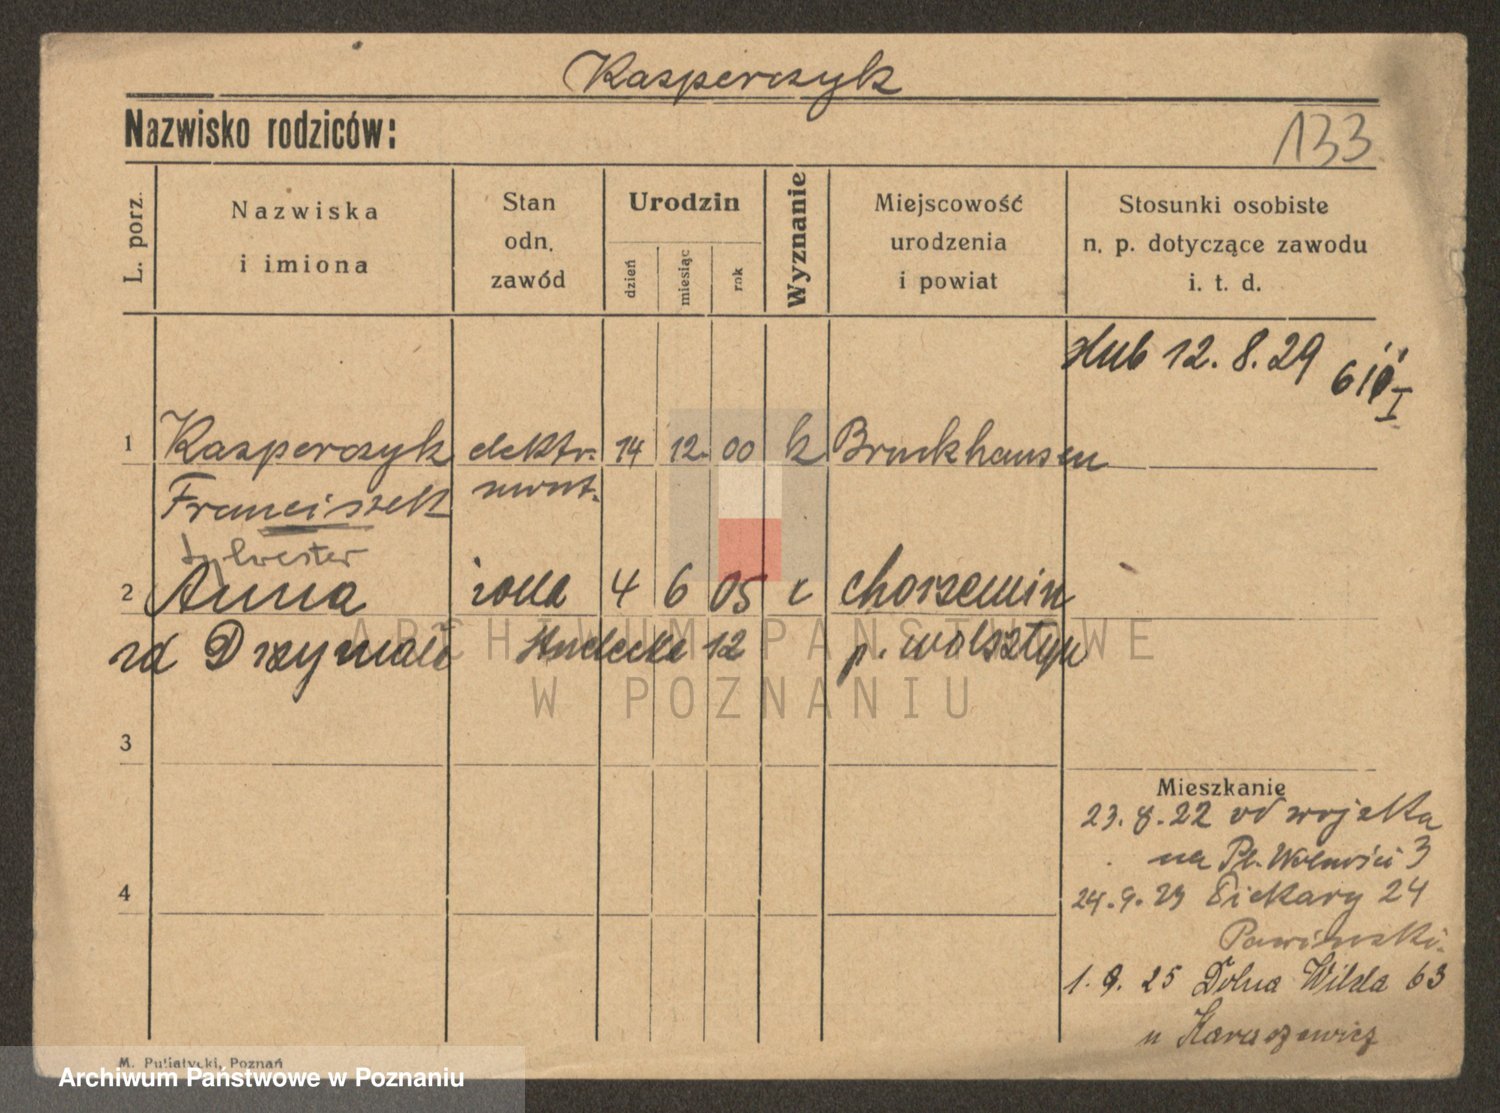 Kasperczyk
Nazwisko rodziców:
133
L. porz.
Nazwiska
i imiona
Stan
odn.
zawód
Urodzin
dzień
miesiąc
rok
Wyznanie
Miejscowość
urodzenia
i powiat
Stosunki osobiste
n. p. dotyczące zawodu
i. t. d.
ślub 12.8.29
1 Kasperczyk elektr. 14 12. 00 k Bruckhausen
Franciszek mont.
Sylvester
2 Anna żona 4 6 05 k Chorzemin
zd Drzymała 12 p. Wolsztyn
3
Mieszkanie
23.8.22 od wojska
na Pl. Wolności 3
4
24.9.23 Piekary 24
Pawiński.
1.9.25 Dolna Wilda 63
u Haraszewicz
M. Puliatycki, Poznań
ARCHIWUM PAŃSTWOWE
W POZNANIU
Archiwum Państwowe w Poznaniu